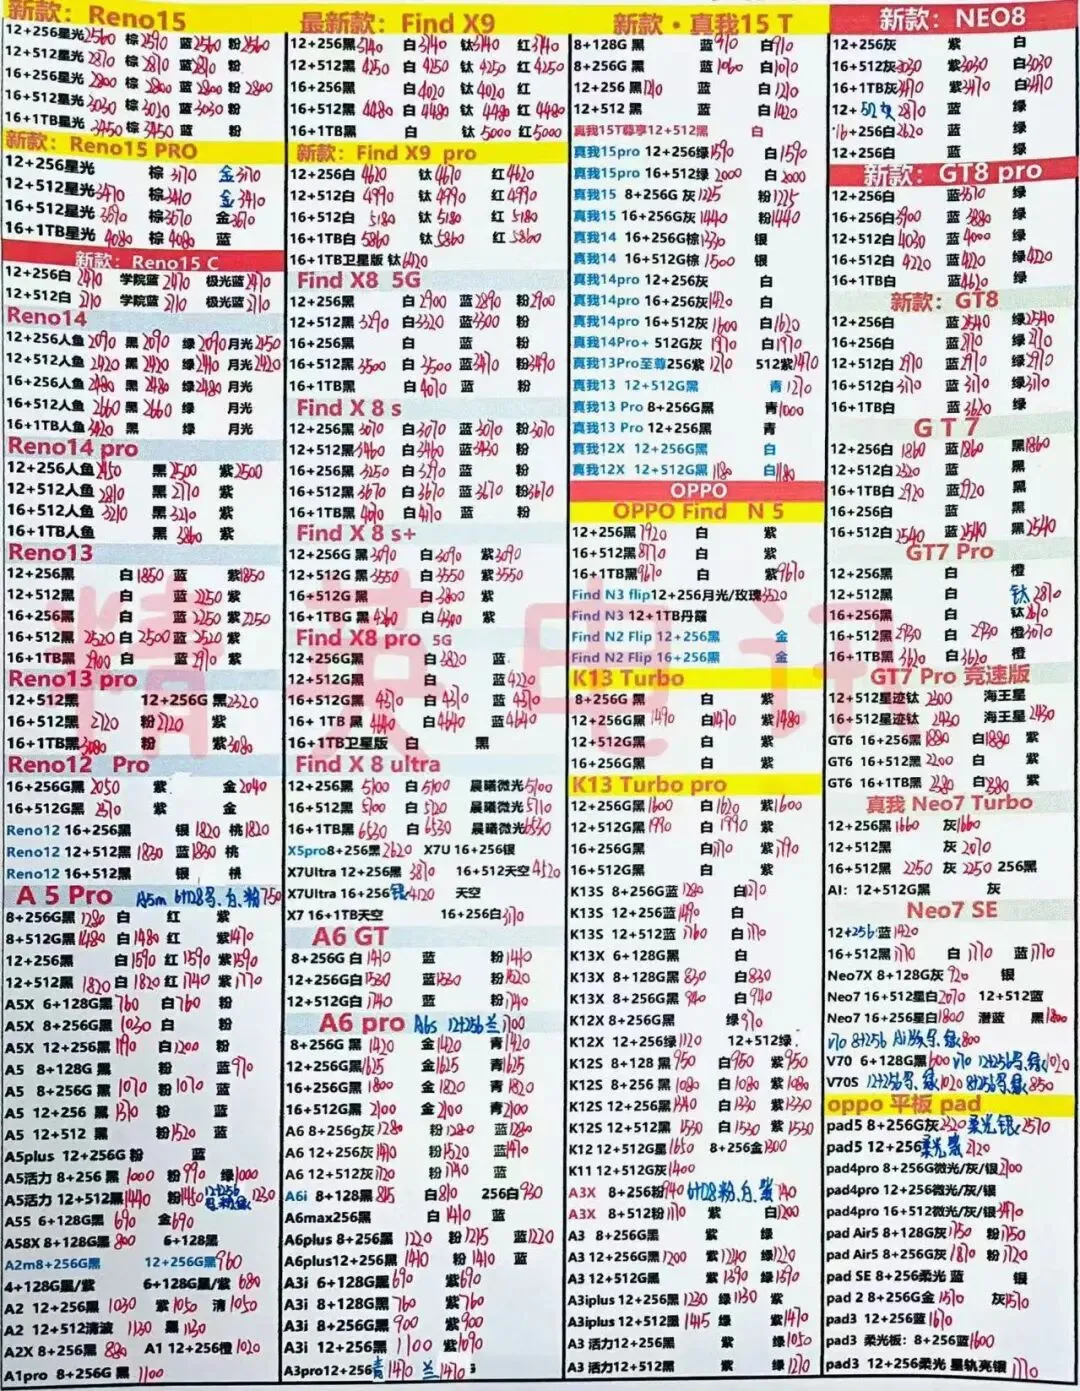 新款：Reno15
12+256星光2560 棕2590 蓝2560 粉2560
12+512星光2870 棕2810 蓝2810 粉
16+256星光2800 棕2800 蓝2800 粉2800
16+512星光3030 棕3020 蓝3030 粉
16+1TB星光3450 棕3450 蓝 粉
新款：Reno15 PRO
12+256星光 棕3170 金3170
12+512星光3470 棕3410 金3410
16+512星光3690 棕3670 金3670
16+1TB星光4080 棕4080 蓝
新款：Reno15 C
12+256白2470 学院蓝2470 极光蓝2470
12+512白2710 学院蓝2710 极光蓝2710
Reno14
12+256人鱼2090 黑2070 绿2090 月光2450
12+512人鱼2420 黑2420 绿2440 月光2420
16+256人鱼2480 黑2480 绿2480 月光
16+512人鱼2660 黑2660 绿 月光
16+1TB人鱼3420 黑 绿 月光
Reno14 pro
12+256人鱼2450 黑2500 紫2500
12+512人鱼2810 黑2770 紫
16+512人鱼3210 黑3210 紫
16+1TB人鱼 黑3860 紫
Reno13
12+256黑 白1850 蓝 紫1850
12+512黑 白 蓝2250 紫
16+256黑 白 蓝2250 紫2250
16+512黑2520 白2500 蓝2520 紫
16+1TB黑2900 白 蓝2970 紫
Reno13 pro
12+512黑 12+256G黑2320
16+512黑2720 粉2720 紫
16+1TB黑3080 粉 紫3080
Reno12 Pro
16+256G黑2050 紫 金2040
16+512G黑2370 紫 金
Reno12 16+256黑 银1820 桃1820
Reno12 12+512黑1830 蓝1830 桃
Reno12 16+512黑 银 桃
A 5 Pro A5m 6+128黑、白、粉750
8+256G黑1280 白 红 紫
8+512G黑1480 白1480 红 紫1470
12+256黑 白1590 红1590 紫1590
12+512黑1820 白1820 红1740 紫1770
A5X 6+128G黑760 白760 粉
A5X 8+256G黑1030 白 粉
A5X 12+256黑1190 白1200 粉
A5 8+128G黑 粉 蓝970
A5 8+256G黑1070 粉1070 蓝
A5 12+256黑1370 粉 蓝
A5 12+512黑 粉1520 蓝
A5plus 12+256G粉 蓝
A5活力 8+256黑1000 粉990 绿1000
A5活力 12+512黑1440 粉1450 12+256 1230
A5S 6+128G黑690 金690
A58X 8+128G黑800 6+128黑
A2m8+256G黑 12+256G黑960
4+128G黑/紫 6+128G黑/紫680
A2 12+256黑1030 紫1050 清1050
A2 12+512清波1130 黑1130
A2X 8+256黑880 A1 12+256橙1020
A1pro 8+256G黑1100
最新款：Find X9
12+256黑3740 白3740 钛3740 红3740
12+512黑4250 白4250 钛4250 红4250
16+256黑 白4020 钛4020 红
16+512黑4480 白4480 钛4480 红4480
16+1TB黑 白 钛5000 红5000
新款：Find X9 pro
12+256白4620 钛4670 红4620
12+512白4990 钛4990 红4990
16+512白5180 钛5180 红5180
16+1TB白5860 钛5860 红5860
16+1TB卫星版 钛6420
Find X8 5G
12+256黑 白2900 蓝2890 粉2900
12+512黑3290 白3320 蓝3300 粉
16+256黑 白 蓝 粉
16+512黑3500 白3500 蓝3470 粉3490
16+1TB黑 白4070 蓝 粉
Find X 8 s
12+256黑3070 白3070 蓝3070 粉3070
12+512黑3460 白3460 蓝3430 粉
16+256黑3250 白3290 蓝 粉
16+512黑3670 白3670 蓝3670 粉3670
16+1TB黑4070 白4170 蓝 粉
Find X 8 s+
12+256G黑3090 白3090 紫3090
12+512G黑3550 白3550 紫3550
16+512G黑 白3800 紫
16+1TBG黑4260 白4300 紫
Find X8 pro 5G
12+256G黑 白3820 蓝
12+512G黑 白 蓝4220
16+512G黑4370 白4370 蓝4370
16+1TB黑4640 白4640 蓝4640
16+1TB卫星版 白 黑
Find X 8 ultra
12+256黑5100 白5100 晨曦微光5100
16+512黑5700 白5720 晨曦微光5710
16+1TB黑6530 白6530 晨曦微光6530
X5pro8+256黑2620 X7U 16+256银
X7Ultra 12+256黑3870 16+512天空4520
X7Ultra 16+256银4120 天空
X7 16+1TB天空 16+256白3170
A6 GT
8+256G白1410 蓝 粉1410
12+256G白1530 蓝1530 粉1520
12+512G白1740 蓝 粉1740
A6 pro A6s 12+256兰1700
8+256G黑1420 金1420 青1420
12+256G黑1625 金1625 青1625
16+256G黑1800 金1820 青1820
16+512G黑2100 金2100 青2100
A6 8+256g灰1280 粉1280 蓝1280
A6 12+256灰1470 粉1520 蓝1470
A6 12+512灰1720 粉1740 蓝
A6i 8+128黑815 白810 256白930
A6max256黑 白1410 蓝
A6plus 8+256黑1220 粉1215 蓝1220
A6plus12+256黑1410 粉1410 蓝
A3i 6+128G黑690 紫690
A3i 8+128G黑760 紫760
A3i 8+256G黑900 紫900
A3i 12+256黑1100 紫1090
A3pro12+256青1470 兰1470
新款·真我15 T
8+128G黑 蓝910 白910
8+256G黑 蓝1060 白1070
12+256黑1210 蓝 白1210
12+512黑 蓝 白1420
真我15T尊享12+512黑 白
真我15pro 12+256绿1590 白1590
真我15pro 16+512绿2000 白2000
真我15 8+256G灰1225 粉1225
真我15 16+256G灰1440 粉1440
真我14 16+256G棕1330 银
真我14 16+512G棕1500 银
真我14pro 12+256灰 白
真我14pro 16+256灰1420 白
真我14pro 16+512灰1600 白1620
真我14Pro+ 512G灰1970 白1970
真我13Pro至尊256紫1270 512紫1470
真我13 12+512G黑 青1270
真我13 Pro 8+256G黑 青1000
真我13 Pro 12+256黑 青
真我12X 12+256G黑 白
真我12X 12+512G黑1180 白1180
OPPO
OPPO Find N 5
12+256黑7920 白 紫
16+512黑8770 白 紫
16+1TB黑9670 白 紫9670
Find N3 flip12+256月光/玫瑰3520
Find N3 12+1TB丹霞
Find N2 Flip 12+256黑 金
Find N2 Flip 16+256黑 金
K13 Turbo
8+256G黑 白 紫
12+256G黑1490 白1470 紫1480
12+512G黑 白 紫
16+256G黑 白 紫
K13 Turbo pro
12+256G黑1600 白1620 紫1600
12+512G黑1990 白1990 紫
16+256G黑 白1770 紫1790
16+512G黑 白 紫
K13S 8+256G蓝1280 白1270
K13S 12+256蓝1490 白
K13S 12+512蓝1760 白1770
K13X 6+128G黑 白
K13X 8+128G黑830 白830
K13X 8+256G黑940 白940
K12X 8+256G黑 绿970
K12X 12+256绿1120 12+512绿
K12S 8+128黑950 白950 紫950
K12S 8+256黑1080 白1080 紫1080
K12S 12+256黑1340 白1330 紫1330
K12S 12+512黑1530 白1530 紫1530
K12 12+512G星1650 8+256金1300
K11 12+512G灰1400
A3X 8+256粉940 6+128粉、白、紫740
A3X 8+512粉1170 紫 白1200
A3 8+256G黑 紫 绿
A3 12+256G黑1200 紫1240 绿1220
A3 12+512G黑 紫1390 绿1390
A3iplus 12+256黑1230 绿1130 紫
A3iplus 12+512黑1445 绿 紫1470
A3 活力12+256黑 紫 绿1050
A3 活力12+512黑 紫 绿1270
新款：NEO8
12+256灰 紫 白
16+512灰3030 紫3030 白3030
16+1TB灰3470 紫3470 白3470
12+512灰2870 蓝 绿
16+256白2620 蓝 绿
12+256白 蓝 绿
新款：GT8 pro
12+256白 蓝3570 绿
16+256白3900 蓝3880 绿
12+512白4030 蓝4000 绿
16+512白4220 蓝4220 绿4220
16+1TB白 蓝4620 绿
新款：GT8
12+256白 蓝2540 绿2540
16+256白 蓝2710 绿2710
12+512白2970 蓝2970 绿2970
16+512白3170 蓝3170 绿3170
16+1TB白 蓝3620 绿
G T 7
12+256白1860 蓝1860 黑1860
12+512白2320 蓝 黑
16+1TB白2920 蓝2920 黑
16+256白 蓝 黑
16+512白2540 蓝2530 黑2540
GT7 Pro
12+256黑 白 橙
12+512黑 白 钛2810
16+256黑 白 钛2610
16+512黑2930 白2930 橙3070
16+1TB黑3620 白3620 橙
GT7 Pro 竞速版
12+512星迹钛2300 海王星
16+512星迹钛2420 海王星2430
GT6 16+256黑1880 白1880 紫
GT6 16+512黑2200 白 紫
GT6 16+1TB黑2380 白2380 紫
真我 Neo7 Turbo
12+256黑1660 灰1660
12+512黑 灰2070
16+512黑 2250 灰2250 256黑
AI: 12+512G黑 灰
Neo7 SE
12+256蓝1420
16+512黑1770 白1770 蓝1770
Neo7X 8+128G灰920 银
Neo7 16+512星白2070 12+512蓝
Neo7 16+256星白1800 潜蓝 黑1800
V70 6+128G黑600
V70S
oppo 平板 pad
pad5 8+256G灰2320 柔光银2570
pad5 12+256柔光紫2720
pad4pro 8+256G微光/灰/银2700
pad4pro 12+256微光/灰/银
pad4pro 16+512微光/灰/银3470
pad Air5 8+128G灰1750 粉1750
pad Air5 8+256G灰1870 粉1720
pad SE 8+256柔光 蓝 银
pad 2 8+256G金1570 灰1570
pad3 12+256蓝1670
pad3 柔光板：8+256蓝1600
pad3 12+256柔光 星轨亮银1770
精英电讯